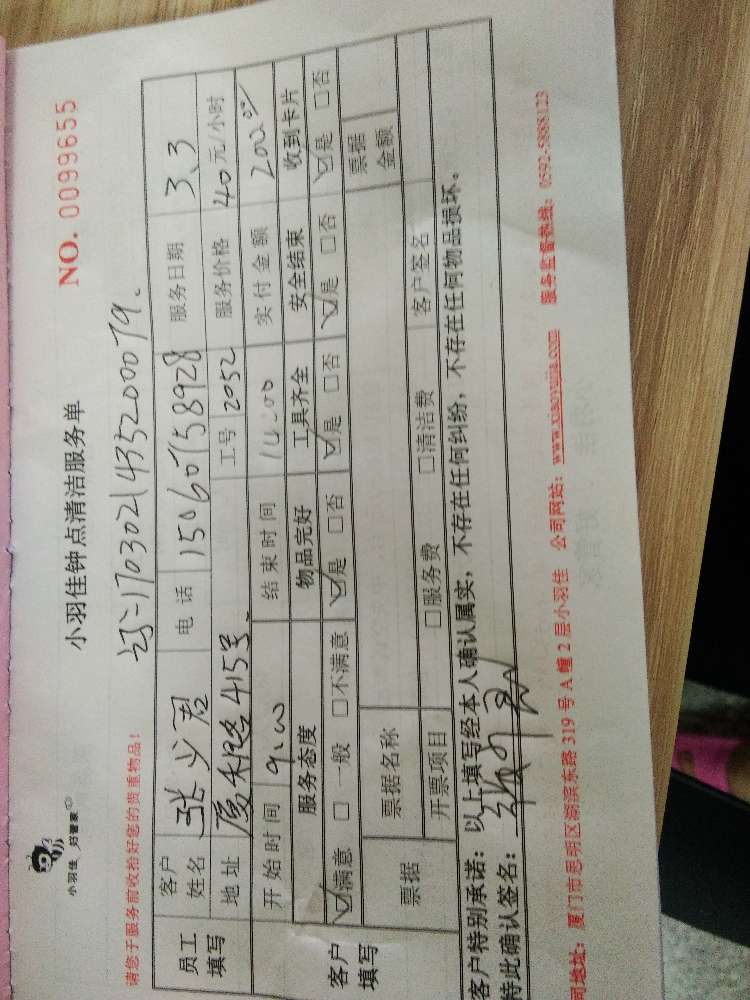 小羽佳 好管家
小羽佳钟点清洁服务单
NO. 0099655
请您于服务前收拾好您的贵重物品！
170302143520079.
员工填写
客户姓名 张少君 电话 15060758928 服务日期 3.3
地址 厦禾路415号. 工号 2052 服务价格 40元/小时
开始时间 9:00 结束时间 14:00 实付金额 200元
客户填写
服务态度 物品完好 工具齐全 安全结束 收到卡片
☑满意 □一般 □不满意 ☑是 □否 ☑是 □否 ☑是 □否 ☑是 □否
票据 票据名称 票据金额
开票项目 □服务费 □清洁费 客户签名
客户特别承诺：以上填写经本人确认属实，不存在任何纠纷，不存在任何物品损坏。
特此确认签名：
司地址：厦门市思明区湖滨东路319号A幢2层小羽佳 公司网站：www.xiaoyujia.com 服务监督热线：0592-5888123